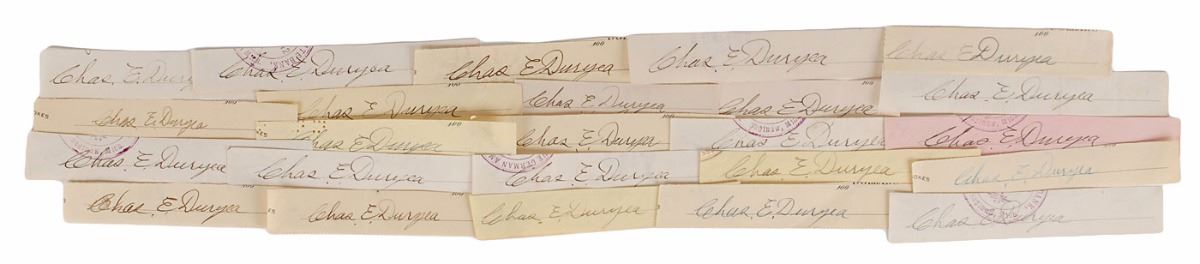 Chas. E. Duryea Chas. E. Duryea Chas. E. Duryea Chas. E. Duryea Chas. E. Duryea
Chas. E. Duryea Chas. E. Duryea Chas. E. Duryea Chas. E. Duryea
Chas. E. Duryea Chas. E. Duryea Chas. E. Duryea Chas. E. Duryea Chas. E. Duryea
Chas. E. Duryea Chas. E. Duryea Chas. E. Duryea THE GERMAN AM Chas. E. Duryea Chas. E. Duryea
Chas. E. Duryea Chas. E. Duryea Chas. E. Duryea Chas. E. Duryea Chas. E. Duryea